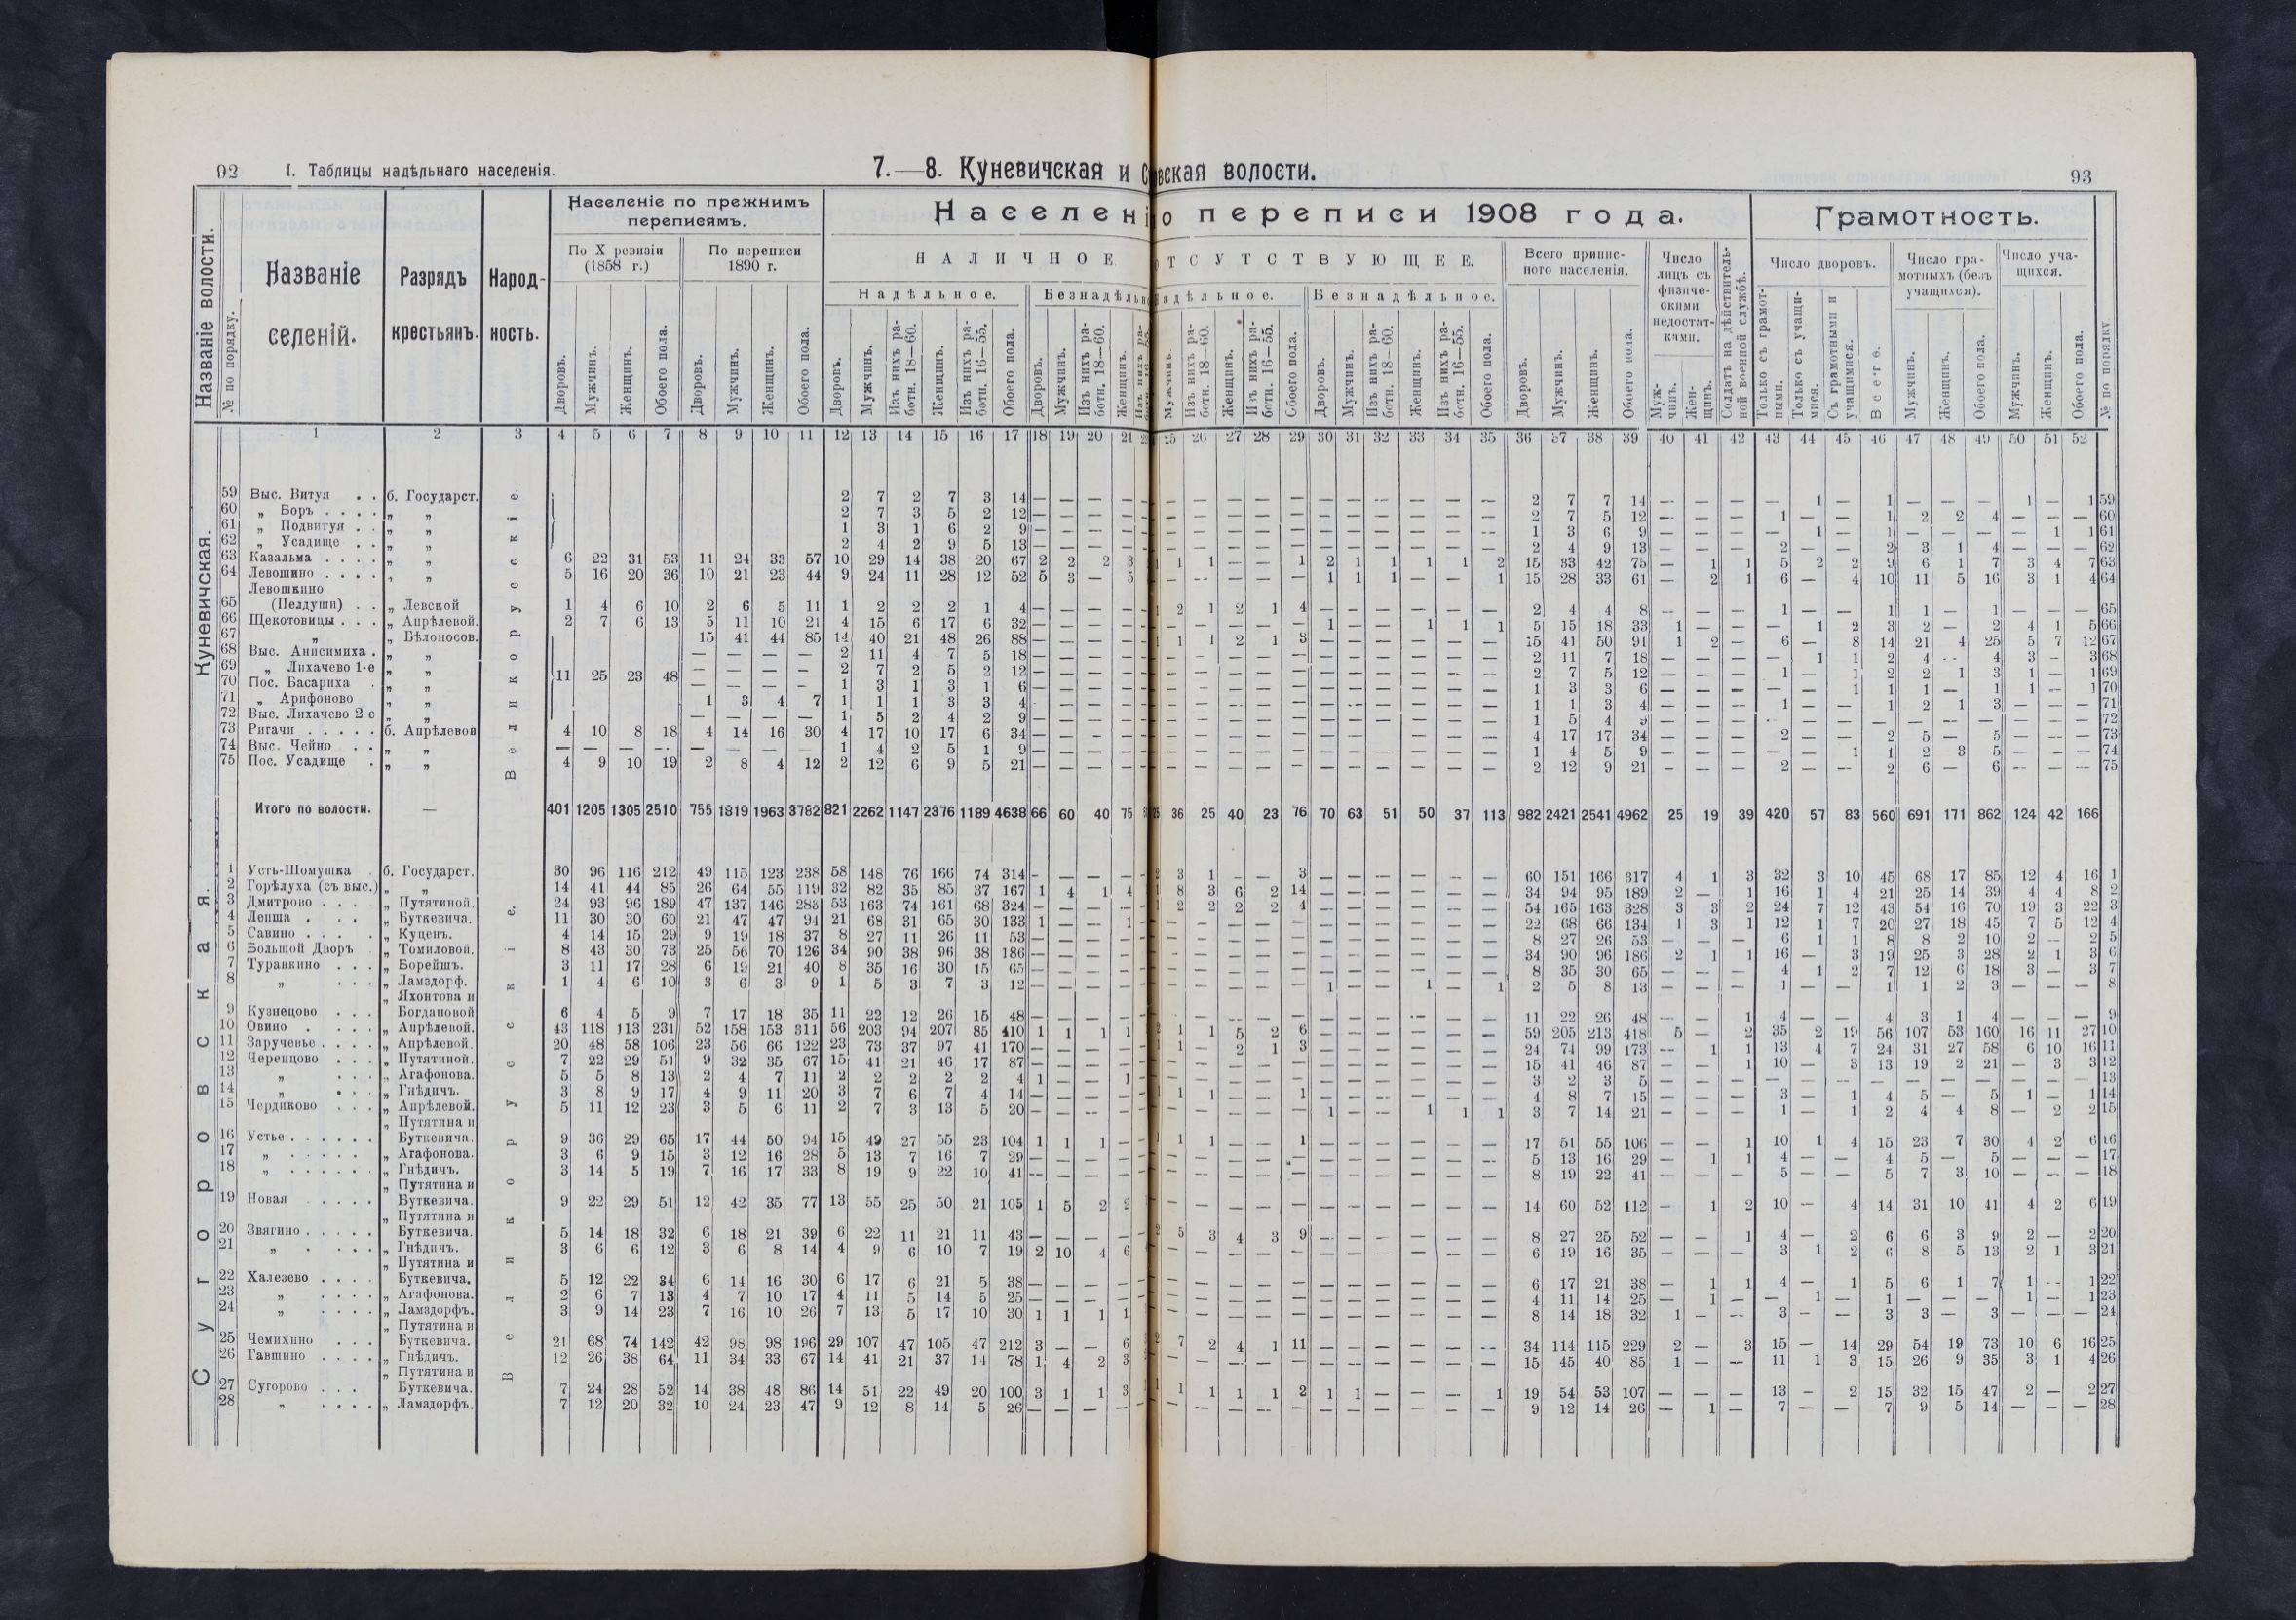 92 I. Таблицы надѣльнаго населенія. 7.—8. Куневичская и С вская волости. 93
Название волости.
№ по порядку.
Названіе селеній.
Разрядъ крестьянъ.
Народность.
Населеніе по прежнимъ переписямъ.
По X ревизіи (1858 г.)
По переписи 1890 г.
Населені о переписи 1908 года.
НАЛИЧНОЕ ОТСУТСТВУЮЩЕЕ.
Надѣльное. Безнадѣльн адѣльное. Безнадѣльное.
Всего приписного населенія.
Число лицъ съ физическими недостатками.
Солдатъ на дѣйствительной военной службѣ.
Грамотность.
Число дворовъ.
Число грамотныхъ (безъ учащихся).
Число учащихся.
Дворовъ. Мужчинъ. Женщинъ. Обоего пола. Дворовъ. Мужчинъ. Женщинъ. Обоего пола. Дворовъ. Мужчинъ. Изъ нихъ работн. 18—60. Женщинъ. Изъ нихъ работн. 16—55. Обоего пола. Дворовъ. Мужчинъ. Изъ нихъ работн. 18—60. Женщинъ.
Мужчинъ. Изъ нихъ работн. 18—60. Женщинъ. Изъ нихъ работн. 16—55. Обоего пола. Дворовъ. Мужчинъ. Изъ нихъ работн. 18—60. Женщинъ. Изъ нихъ работн. 16—55. Обоего пола. Дворовъ. Мужчинъ. Женщинъ. Обоего пола. Мужчинъ. Женщинъ. Только съ грамотными. Только съ учащимися. Съ грамотными и учащимися. Всего. Мужчинъ. Женщинъ. Обоего пола. Мужчинъ. Женщинъ. Обоего пола. № по порядку
1 2 3 4 5 6 7 8 9 10 11 12 13 14 15 16 17 18 19 20 21 25 26 27 28 29 30 31 32 33 34 35 36 37 38 39 40 41 42 43 44 45 46 47 48 49 50 51 52
Куневичская.
Великорусскіе.
59 Выс. Витуя . . б. Государст. 2 7 2 7 3 14 — — — — — — — — — — — — — — — 2 7 7 14 — — — — 1 — 1 — — — 1 — 1 59
60 „ Боръ . . . . „ „ 2 7 3 5 2 12 — — — — — — — — — — — — — — — 2 7 5 12 — — — 1 — — 1 2 2 4 — — — 60
61 „ Подвитуя . . „ „ 1 3 1 6 2 9 — — — — — — — — — — — — — — — 1 3 6 9 — — — — 1 — 1 — — — — 1 1 61
62 „ Усадище . . „ „ 2 4 2 9 5 13 — — — — — — — — — — — — — — — 2 4 9 13 — — — 2 — — 2 3 1 4 — — — 62
63 Казальма . . . . „ „ 6 22 31 53 11 24 33 57 10 29 14 38 20 67 2 2 2 3 1 1 — — 1 2 1 1 1 1 2 15 33 42 75 — 1 1 5 2 2 9 6 1 7 3 4 7 63
64 Левошино . . . . „ „ 5 16 20 36 10 21 23 44 9 24 11 28 12 52 5 3 — 5 — — — — — 1 1 1 — — 1 15 28 33 61 — 2 1 6 — 4 10 11 5 16 3 1 4 64
Левошкино
65 (Пелдуши) . . „ Левской 1 4 6 10 2 6 5 11 1 2 2 2 1 4 — — — — 2 1 2 1 4 — — — — — — 2 4 4 8 — — — 1 — — 1 1 — 1 — — — 65
66 Щекотовицы . . . „ Апрѣлевой. 2 7 6 13 5 11 10 21 4 15 6 17 6 32 — — — — — — — — — 1 — — 1 1 1 5 15 18 33 1 — — — 1 2 3 2 — 2 4 1 5 66
67 „ „ Бѣлоносов. 15 41 44 85 14 40 21 48 26 88 — — — — 1 1 2 1 3 — — — — — — 15 41 50 91 1 2 — 6 — 8 14 21 4 25 5 7 12 67
68 Выс. Анисимиха . „ „ — — — — 2 11 4 7 5 18 — — — — — — — — — — — — — — — 2 11 7 18 — — — — 1 1 2 4 — 4 3 — 3 68
69 „ Лихачево 1-е „ „ 11 25 23 48 — — — — 2 7 2 5 2 12 — — — — — — — — — — — — — — — 2 7 5 12 — — — 1 — 1 2 2 1 3 1 — 1 69
70 Пос. Басариха . „ „ — — — — 1 3 1 3 1 6 — — — — — — — — — — — — — — — 1 3 3 6 — — — — — 1 1 1 — 1 1 — 1 70
71 „ Арифоново „ „ 1 3 4 7 1 1 1 3 3 4 — — — — — — — — — — — — — — — 1 1 3 4 — — — 1 — — 1 2 1 3 — — — 71
72 Выс. Лихачево 2 е „ „ — — — — 1 5 2 4 2 9 — — — — — — — — — — — — — — — 1 5 4 9 — — — — — — — — — — — — — 72
73 Ригачи . . . . . б. Апрѣлевой 4 10 8 18 4 14 16 30 4 17 10 17 6 34 — — — — — — — — — — — — — — — 4 17 17 34 — — — 2 — — 2 5 — 5 — — — 73
74 Выс. Чейно . . „ „ — — — — — — — — 1 4 2 5 1 9 — — — — — — — — — — — — — — — 1 4 5 9 — — — — — 1 1 2 3 5 — — — 74
75 Пос. Усадище . „ „ 4 9 10 19 2 8 4 12 2 12 6 9 5 21 — — — — — — — — — — — — — — — 2 12 9 21 — — — 2 — — 2 6 — 6 — — — 75
Итого по волости. — 401 1205 1305 2510 755 1819 1963 3782 821 2262 1147 2376 1189 4638 66 60 40 75 36 25 40 23 76 70 63 51 50 37 113 982 2421 2541 4962 25 19 39 420 57 83 560 691 171 862 124 42 166
Сугоровская.
Великорусскіе.
1 Усть-Шомушка . б. Государст. 30 96 116 212 49 115 123 238 58 148 76 166 74 314 — — — — 3 1 — — 3 — — — — — — 60 151 166 317 4 1 3 32 3 10 45 68 17 85 12 4 16 1
2 Горѣлуха (съ выс.) „ „ 14 41 44 85 26 64 55 119 32 82 35 85 37 167 1 4 1 4 8 3 6 2 14 — — — — — — 34 94 95 189 2 — 1 16 1 4 21 25 14 39 4 4 8 2
3 Дмитрово . . . . „ Путятиной. 24 93 96 189 47 137 146 283 53 163 74 161 68 324 — — — — 2 2 2 2 4 — — — — — — 54 165 163 328 3 3 2 24 7 12 43 54 16 70 19 3 22 3
4 Лепша . . . „ Буткевича. 11 30 30 60 21 47 47 94 21 68 31 65 30 133 1 — — 1 — — — — — — — — — — — 22 68 66 134 1 3 1 12 1 7 20 27 18 45 7 5 12 4
5 Савино . . . . „ Куценъ. 4 14 15 29 9 19 18 37 8 27 11 26 11 53 — — — — — — — — — — — — — — — 8 27 26 53 — — — 6 1 1 8 8 2 10 2 — 2 5
6 Большой Дворъ . „ Томиловой. 8 43 30 73 25 56 70 126 34 90 38 96 38 186 — — — — — — — — — — — — — — — 34 90 96 186 2 1 1 16 — 3 19 25 3 28 2 1 3 6
7 Туравкино . . . „ Борейшъ. 3 11 17 28 6 19 21 40 8 35 16 30 15 65 — — — — — — — — — — — — — — — 8 35 30 65 — — — 4 1 2 7 12 6 18 3 — 3 7
8 „ . . . „ Ламздорф. 1 4 6 10 3 6 3 9 1 5 3 7 3 12 — — — — — — — — — 1 — — 1 — 1 2 5 8 13 — — — 1 — — 1 1 2 3 — — — 8
„ Яхонтова и
9 Кузнецово . . . Богдановой 6 4 5 9 7 17 18 35 11 22 12 26 15 48 — — — — — — — — — — — — — — — 11 22 26 48 — — 1 4 — — 4 3 1 4 — — — 9
10 Овино . . . . „ Апрѣлевой. 43 118 113 231 52 158 153 311 56 203 94 207 85 410 1 1 1 1 1 1 5 2 6 — — — — — — 59 205 213 418 5 — 2 35 2 19 56 107 53 160 16 11 27 10
11 Заручевье . . . . „ Апрѣлевой. 20 48 58 106 23 56 66 122 23 73 37 97 41 170 — — — — 1 — 2 1 3 — — — — — — 24 74 99 173 — 1 1 13 4 7 24 31 27 58 6 10 16 11
12 Черенцово . . . „ Путятиной. 7 22 29 51 9 32 35 67 15 41 21 46 17 87 — — — — — — — — — — — — — — — 15 41 46 87 — — 1 10 — 3 13 19 2 21 — 3 3 12
13 „ . . . „ Агафонова. 5 5 8 13 2 4 7 11 2 2 2 2 2 4 1 — — 1 — — — — — — — — — — — 3 2 3 5 — — — — — — — — — — — — — 13
14 „ . . . „ Гнѣдичъ. 3 8 9 17 4 9 11 20 3 7 6 7 4 14 — — — — 1 1 — — 1 — — — — — — 4 8 7 15 — — — 3 — 1 4 5 — 5 1 — 1 14
15 Чердиково . . . „ Апрѣлевой. 5 11 12 23 3 5 6 11 2 7 3 13 5 20 — — — — — — — — — 1 — — 1 1 1 3 7 14 21 — — — 1 — 1 2 4 4 8 — 2 2 15
„ Путятина и
16 Устье . . . . . . Буткевича. 9 36 29 65 17 44 50 94 15 49 27 55 23 104 1 1 1 — 1 1 — — 1 — — — — — — 17 51 55 106 — — 1 10 1 4 15 23 7 30 4 2 6 16
17 „ . . . . . „ Агафонова. 3 6 9 15 3 12 16 28 5 13 7 16 7 29 — — — — — — — — — — — — — — — 5 13 16 29 — 1 1 4 — — 4 5 — 5 — — — 17
18 „ . . . . . . „ Гнѣдичъ. 3 14 5 19 7 16 17 33 8 19 9 22 10 41 — — — — — — — — — — — — — — — 8 19 22 41 — — — 5 — — 5 7 3 10 — — — 18
„ Путятина и
19 Новая . . . . . Буткевича. 9 22 29 51 12 42 35 77 13 55 25 50 21 105 1 5 2 2 — — — — — — — — — — — 14 60 52 112 — 1 2 10 — 4 14 31 10 41 4 2 6 19
„ Путятина и
20 Звягино . . . . . Буткевича. 5 14 18 32 6 18 21 39 6 22 11 21 11 43 — — — — 5 3 4 3 9 — — — — — — 8 27 25 52 — — 1 4 — 2 6 6 3 9 2 — 2 20
21 „ . . . . „ Гнѣдичъ. 3 6 6 12 3 6 8 14 4 9 6 10 7 19 2 10 4 6 — — — — — — — — — — — 6 19 16 35 — — — 3 1 2 6 8 5 13 2 1 3 21
„ Путятина и
22 Халезево . . . . Буткевича. 5 12 22 34 6 14 16 30 6 17 6 21 5 38 — — — — — — — — — — — — — — — 6 17 21 38 — 1 1 4 — 1 5 6 1 7 1 — 1 22
23 „ . . . . „ Агафонова. 2 6 7 13 4 7 10 17 4 11 5 14 5 25 — — — — — — — — — — — — — — — 4 11 14 25 — 1 — — 1 — 1 — — — 1 — 1 23
24 „ . . . . „ Ламздорфъ. 3 9 14 23 7 16 10 26 7 13 5 17 10 30 1 1 1 1 — — — — — — — — — — — 8 14 18 32 1 — — 3 — — 3 3 — 3 — — — 24
„ Путятина и
25 Чемихино . . . Буткевича. 21 68 74 142 42 98 98 196 29 107 47 105 47 212 3 — — 6 7 2 4 1 11 — — — — — — 34 114 115 229 2 — 3 15 — 14 29 54 19 73 10 6 16 25
26 Гавшино . . . . „ Гнѣдичъ. 12 26 38 64 11 34 33 67 14 41 21 37 14 78 1 4 2 3 — — — — — — — — — — — 15 45 40 85 1 — — 11 1 3 15 26 9 35 3 1 4 26
„ Путятина и
27 Сугорово . . . Буткевича. 7 24 28 52 14 38 48 86 14 51 22 49 20 100 3 1 1 3 1 1 1 1 2 1 1 — — — 1 19 54 53 107 — — — 13 — 2 15 32 15 47 2 — 2 27
28 „ . . . . „ Ламздорфъ. 7 12 20 32 10 24 23 47 9 12 8 14 5 26 — — — — — — — — — — — — — — — 9 12 14 26 — 1 — 7 — — 7 9 5 14 — — — 28